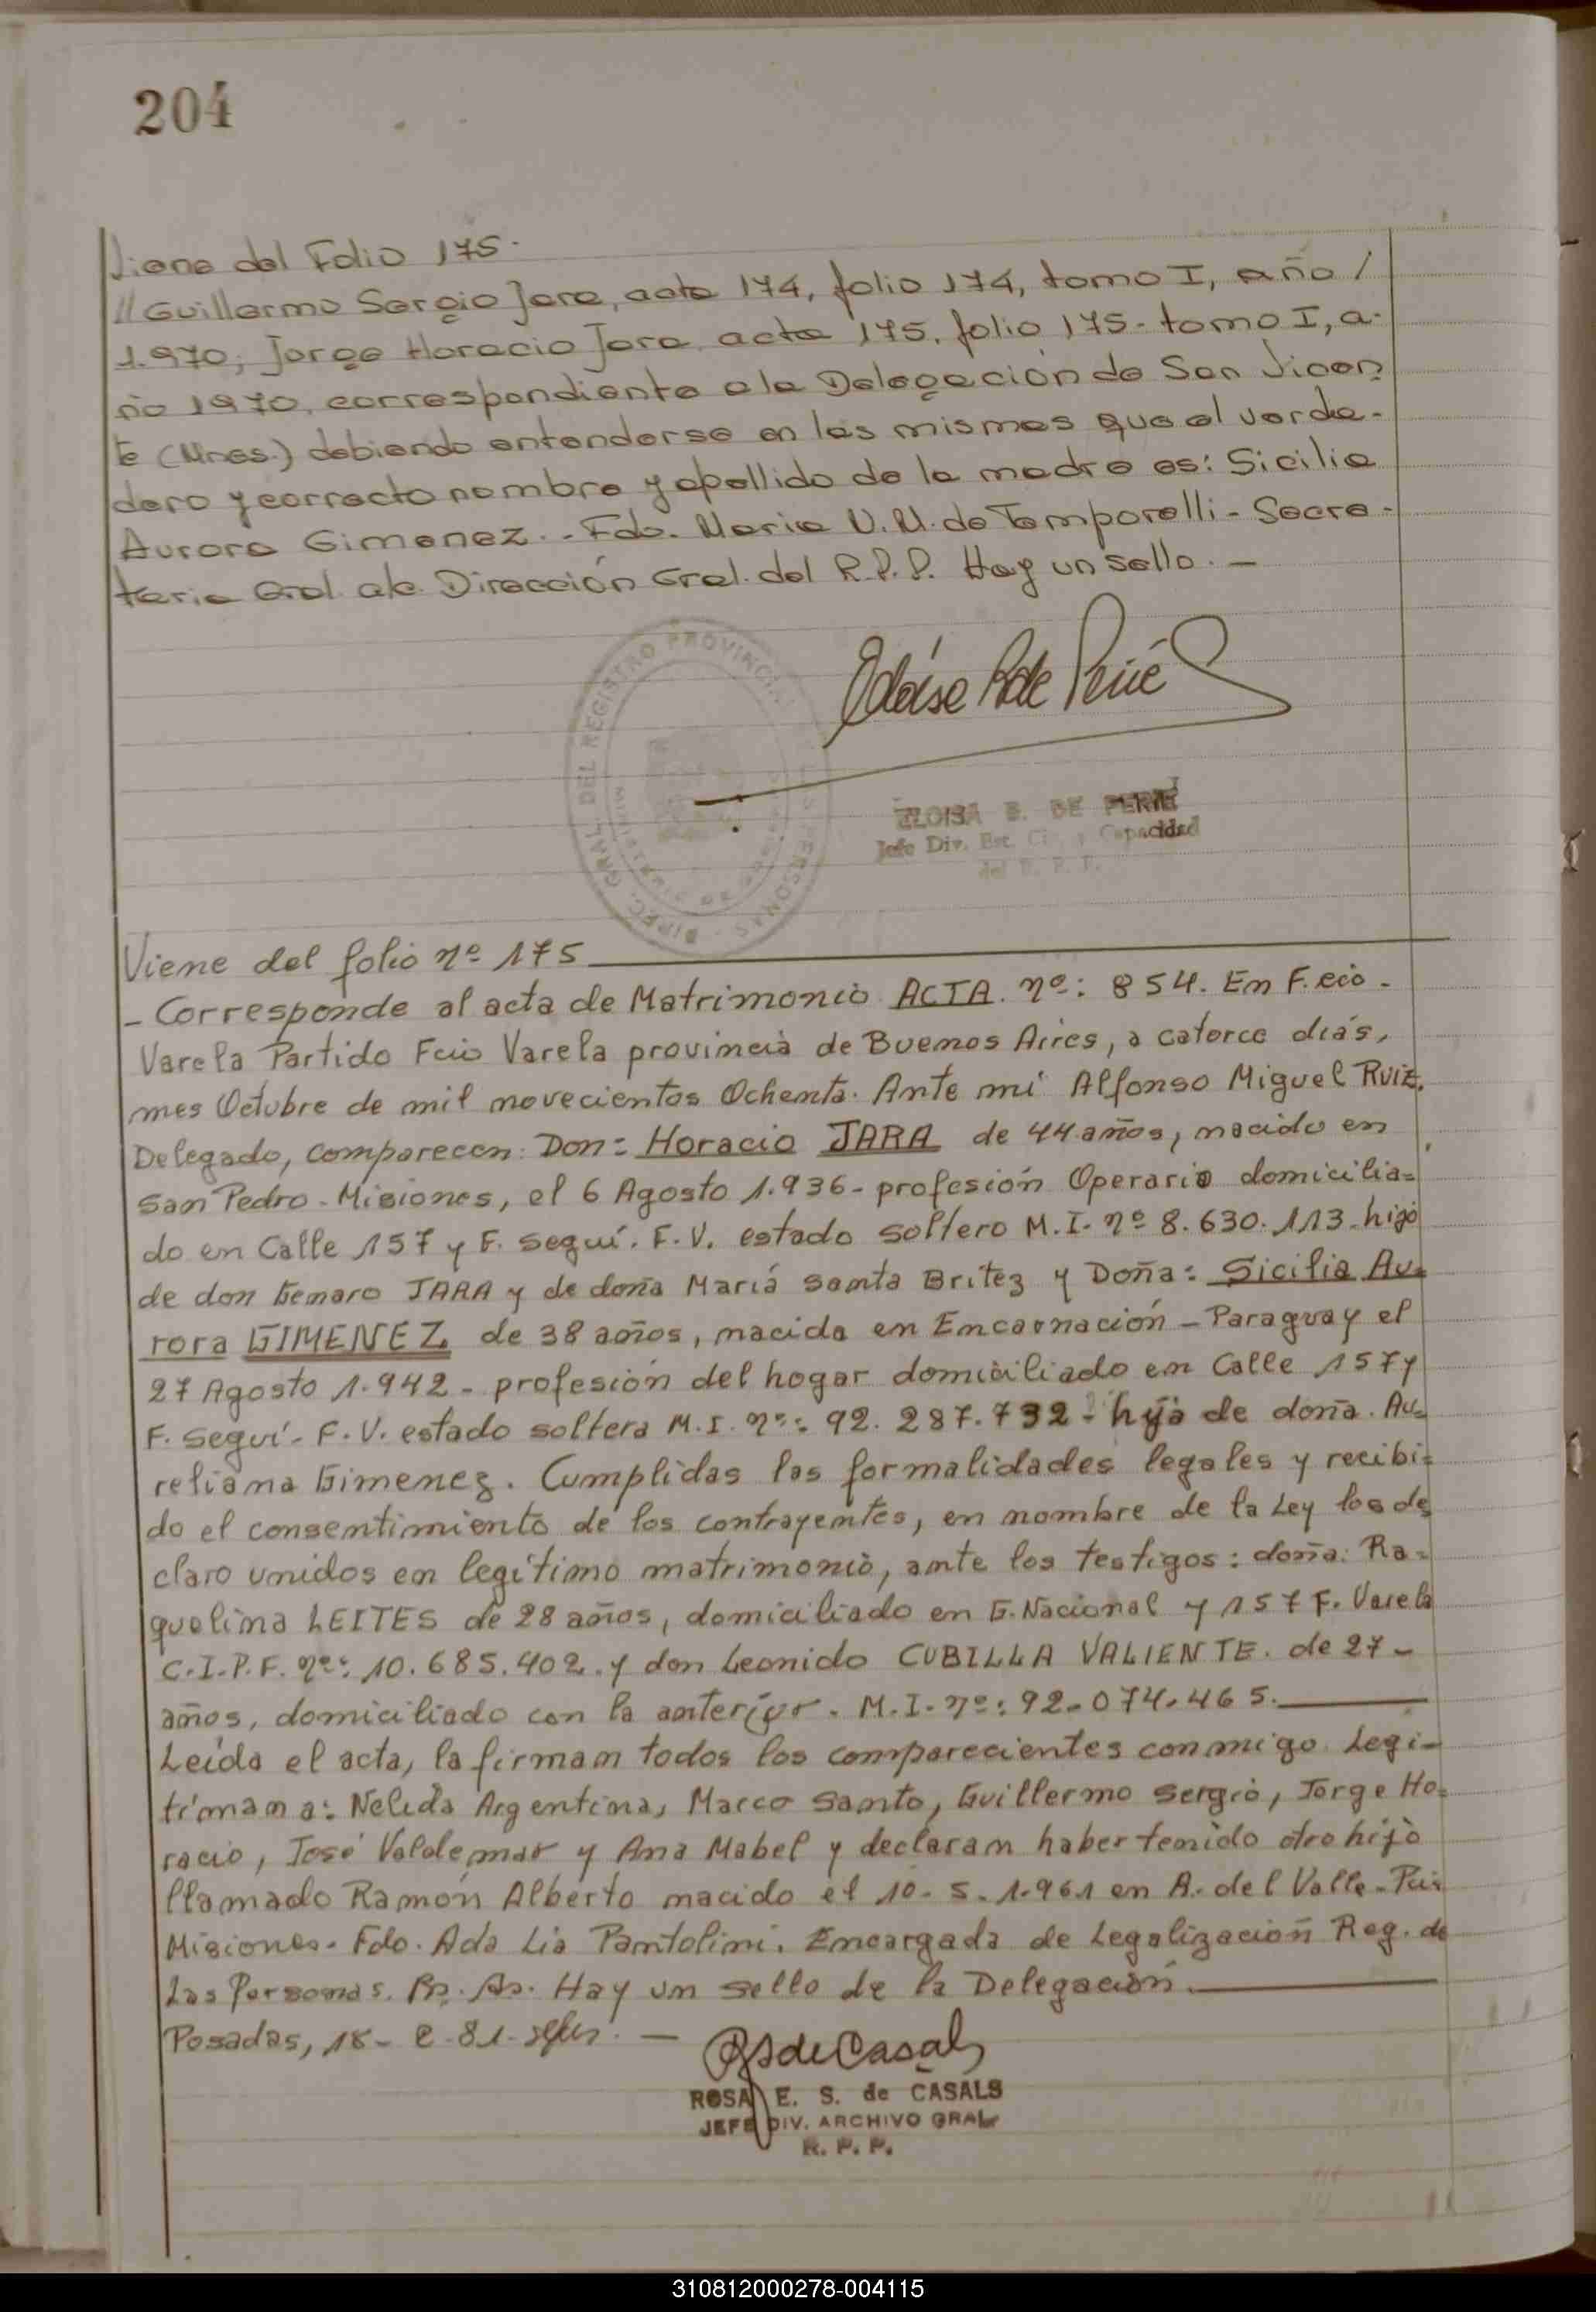 204
Viene del Folio 175.
// Guillermo Sergio Jara, acta 174, folio 174, tomo I, año /
1.970; Jorge Horacio Jara, acta 175, folio 175- tomo I, a-
ño 1970, correspondiente a la Delegación de San Vicen
te (Mnes.) debiendo entenderse en las mismas que el verda-
dero y correcto nombre y apellido de la madre es: Sicilia
Aurora Gimenez.- Fdo. Maria U. M. de Temporelli- Secre-
taria Gral. a/c. Dirección Gral. del R.P.P. Hay un sello.-
DIREC. GRAL. DEL REGISTRO PROVINCIAL PERSONAS
ELOISA B. DE PERIE
Jefe Div. Est. Civ. y Capacidad
del R. P. P.
Viene del folio nº 175
- Corresponde al acta de Matrimonio ACTA. nº: 854. En F.cio-
Varela Partido Fcio Varela provincia de Buenos Aires, a catorce días,
mes Octubre de mil novecientos Ochenta. Ante mí Alfonso Miguel Ruiz.
Delegado, comparecen: Don: Horacio JARA de 44 años, nacido en
San Pedro- Misiones, el 6 Agosto 1.936- profesión Operario domicilia=
do en Calle 157 y F. Seguí. F.V. estado soltero M.I. nº 8.630.113- hijo
de don Genaro JARA y de doña María Santa Britez y Doña: Sicilia Au=
rora GIMENEZ. de 38 años, nacida en Encarnación - Paraguay el
27 Agosto 1.942- profesión del hogar domiciliado en Calle 157 y
F. Seguí- F.V. estado soltera M.I. nº: 92.287.732- hija de doña. Au=
reliana Gimenez. Cumplidas las formalidades legales y recibi=
do el consentimiento de los contrayentes, en nombre de la Ley los de
claro unidos en legítimo matrimonio, ante los testigos: doña: Ra=
quelina LEITES de 28 años, domiciliado en G. Nacional y 157 F. Varela
C.I.P.F. nº: 10.685.402. y don Leonido CUBILLA VALIENTE. de 27-
años, domiciliado con la anterior. M.I. nº: 92.074.465.
Leída el acta, la firman todos los comparecientes conmigo. Legi-
timan a: Nelida Argentina, Marco Santo, Guillermo Sergio, Jorge Ho=
racio, José Valdemar y Ana Mabel y declaran haber tenido otro hijo
llamado Ramón Alberto nacido el 10-5-1.961 en A. del Valle-
Misiones. Fdo. Ada Lia Pantolini. Encargada de Legalización Reg. de
Las Personas. Bs. As. Hay un sello de la Delegación.
Posadas, 18-2-81-
RS de Casals
ROSA E. S. de CASALS
JEFE DIV. ARCHIVO GRAL
R. P. P.
310812000278-004115